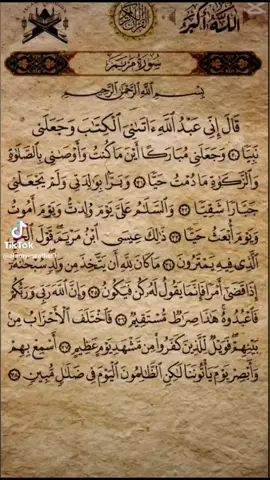 الله أكبر
القرآن الكريم
سورة مريم
بسم الله الرحمن الرحيم
قَالَ إِنِّي عَبْدُ ٱللَّهِ ءَاتَىٰنِيَ ٱلْكِتَٰبَ وَجَعَلَنِي
نَبِيًّا ٣٠ وَجَعَلَنِي مُبَارَكًا أَيْنَ مَا كُنتُ وَأَوْصَٰنِي بِٱلصَّلَوٰةِ
وَٱلزَّكَوٰةِ مَا دُمْتُ حَيًّا ٣١ وَبَرًّۢا بِوَٰلِدَتِي وَلَمْ يَجْعَلْنِي
جَبَّارًا شَقِيًّا ٣٢ وَٱلسَّلَٰمُ عَلَيَّ يَوْمَ وُلِدتُّ وَيَوْمَ أَمُوتُ
وَيَوْمَ أُبْعَثُ حَيًّا ٣٣ ذَٰلِكَ عِيسَى ٱبْنُ مَرْيَمَ قَوْلَ ٱلْحَقِّ
TikTok
ٱلَّذِي فِيهِ يَمْتَرُونَ ٣٤ مَا كَانَ لِلَّهِ أَن يَتَّخِذَ مِن وَلَدٍ سُبْحَٰنَهُۥٓ
إِذَا قَضَىٰٓ أَمْرًا فَإِنَّمَا يَقُولُ لَهُۥ كُن فَيَكُونُ ٣٥ وَإِنَّ ٱللَّهَ رَبِّي وَرَبُّكُمْ
فَٱعْبُدُوهُ هَٰذَا صِرَٰطٌ مُّسْتَقِيمٌ ٣٦ فَٱخْتَلَفَ ٱلْأَحْزَابُ مِنۢ
بَيْنِهِمْ فَوَيْلٌ لِّلَّذِينَ كَفَرُوا۟ مِن مَّشْهَدِ يَوْمٍ عَظِيمٍ ٣٧ أَسْمِعْ بِهِمْ
وَأَبْصِرْ يَوْمَ يَأْتُونَنَا لَٰكِنِ ٱلظَّٰلِمُونَ ٱلْيَوْمَ فِي ضَلَٰلٍ مُّبِينٍ ٣٨